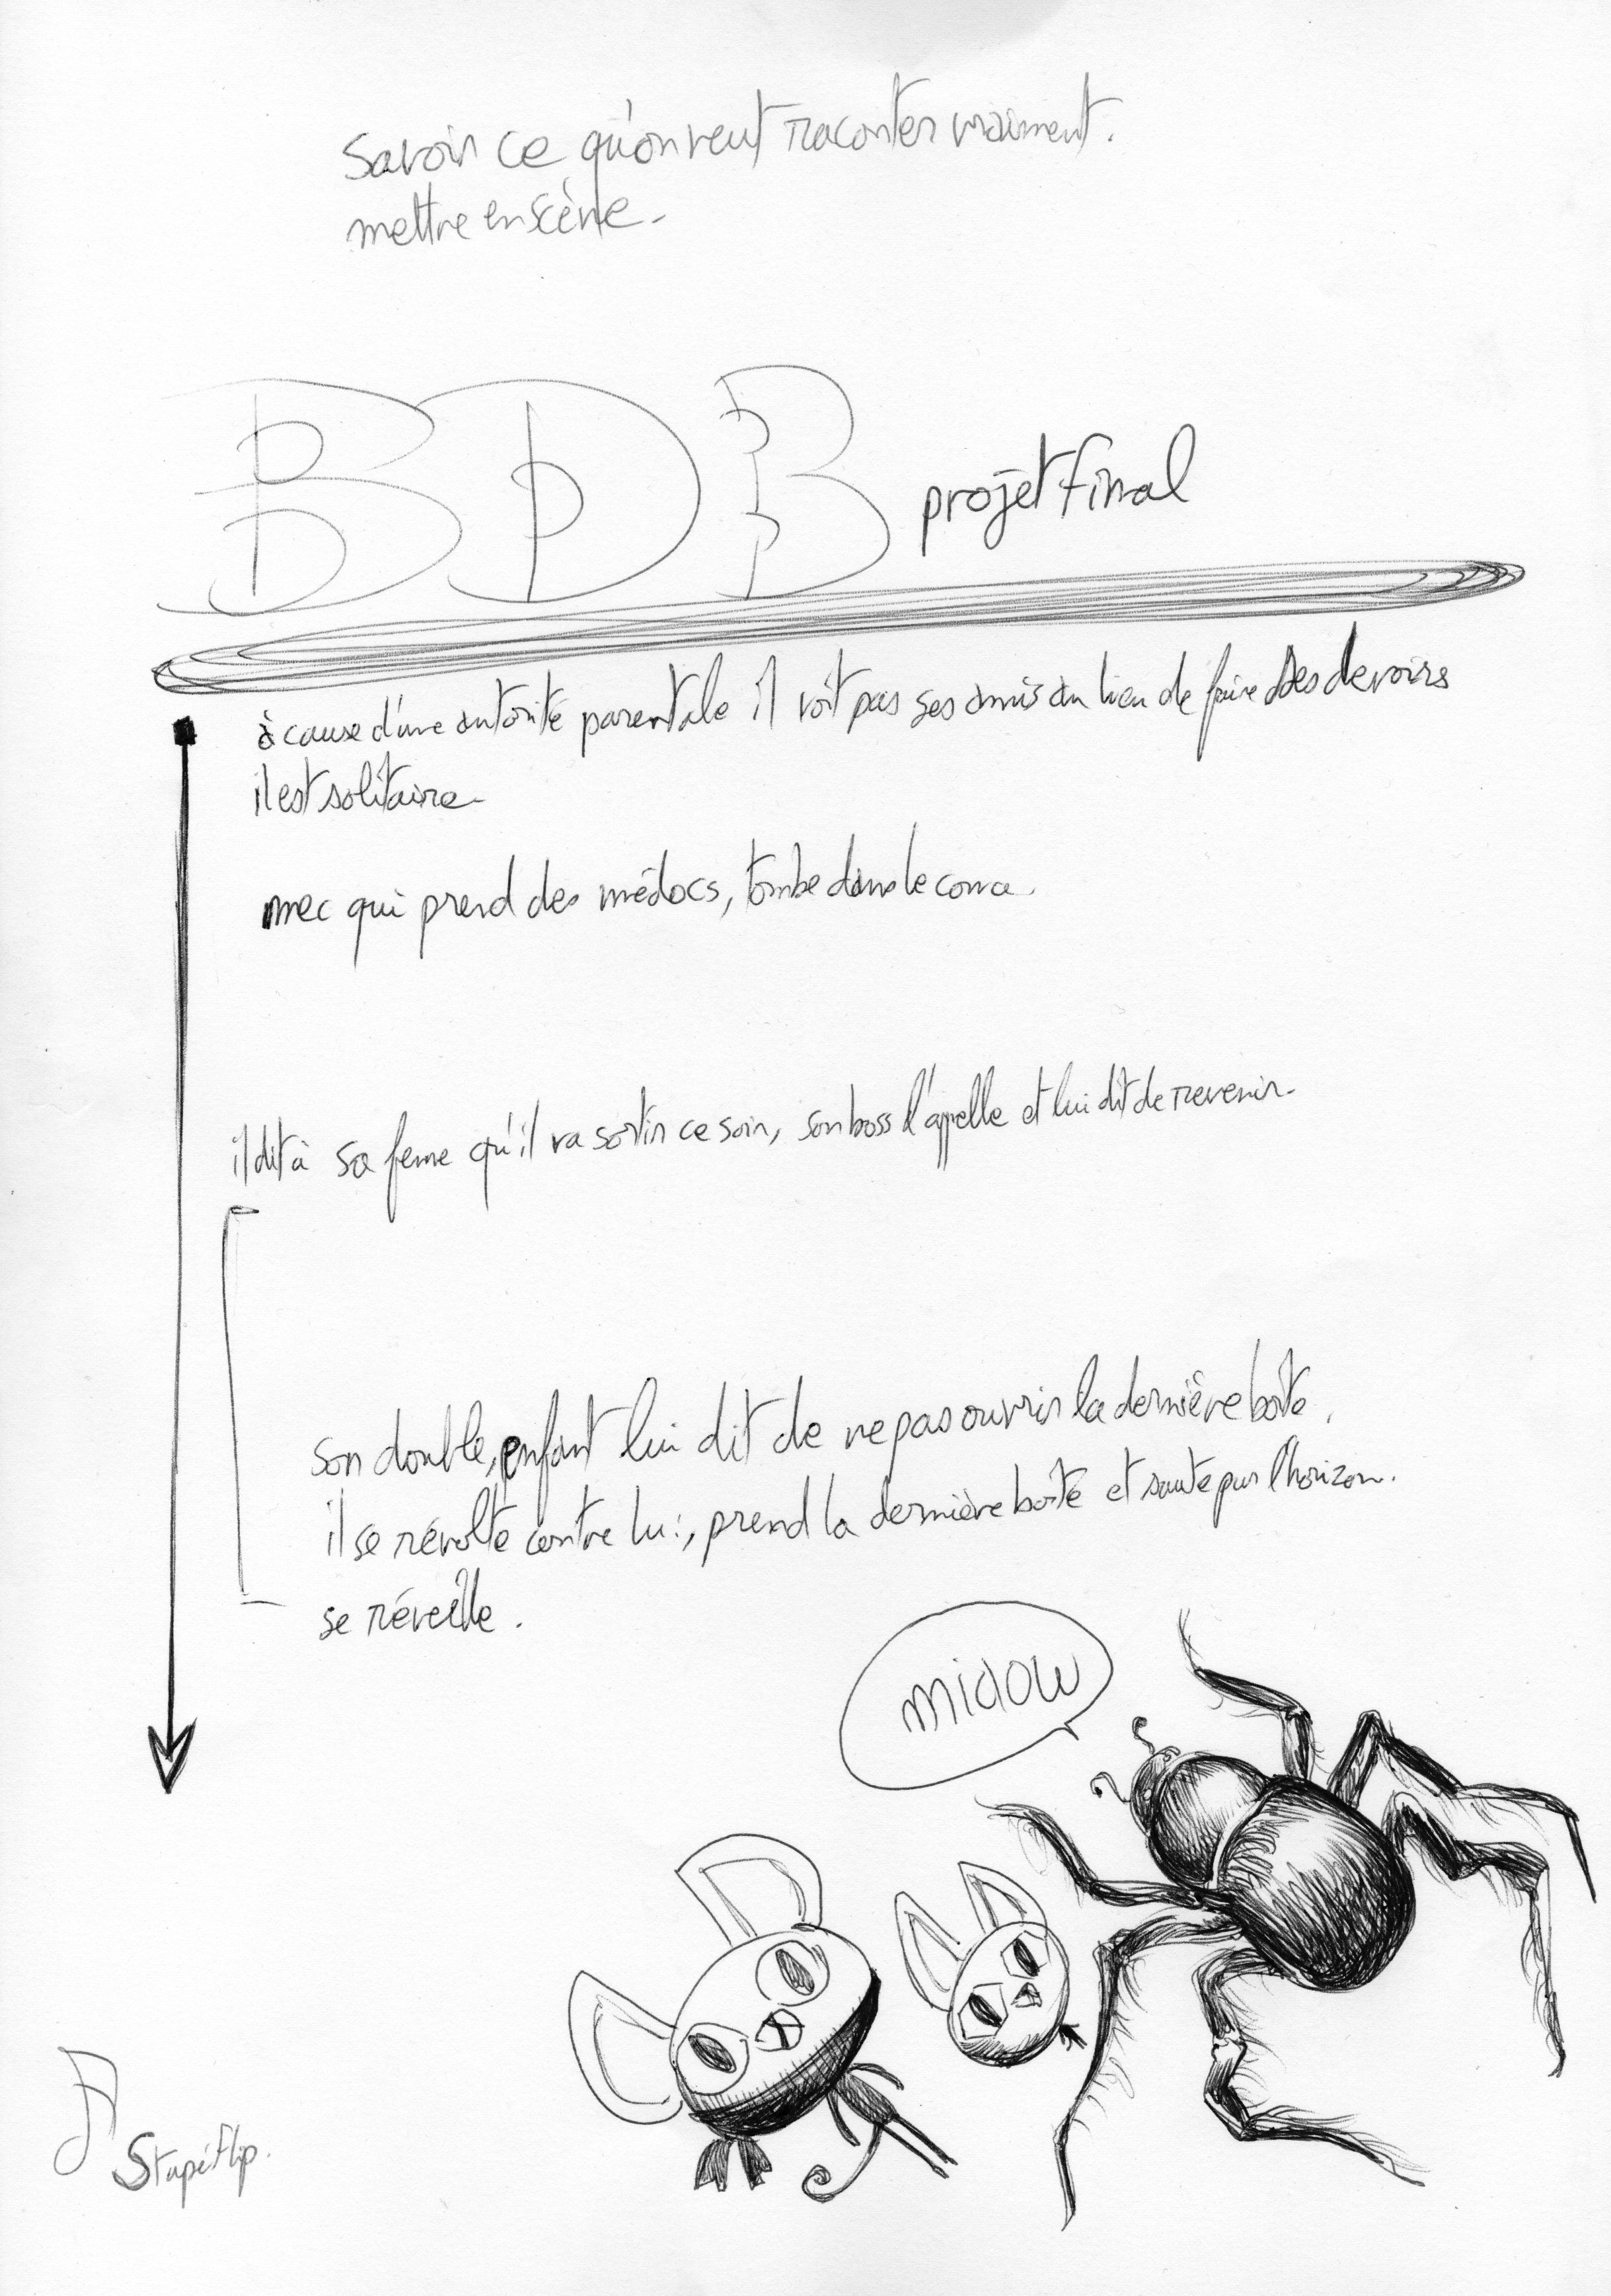 Savoir ce qu'on veut raconter vraiment.
mettre en scène.
BDB projet final
à cause d'une autorité parentale il voit pas ses amis au lieu de faire des devoirs
il est solitaire.
mec qui prend des médocs, tombe dans le coma.
il dit à sa feme qu'il va sortir ce soir, son boss l'appelle et lui dit de revenir.
son double, enfant lui dit de ne pas ouvrir la dernière boîte.
il se révolte contre lui, prend la dernière boîte et saute par l'horizon.
se réveille.
miaow
Stupéflip.